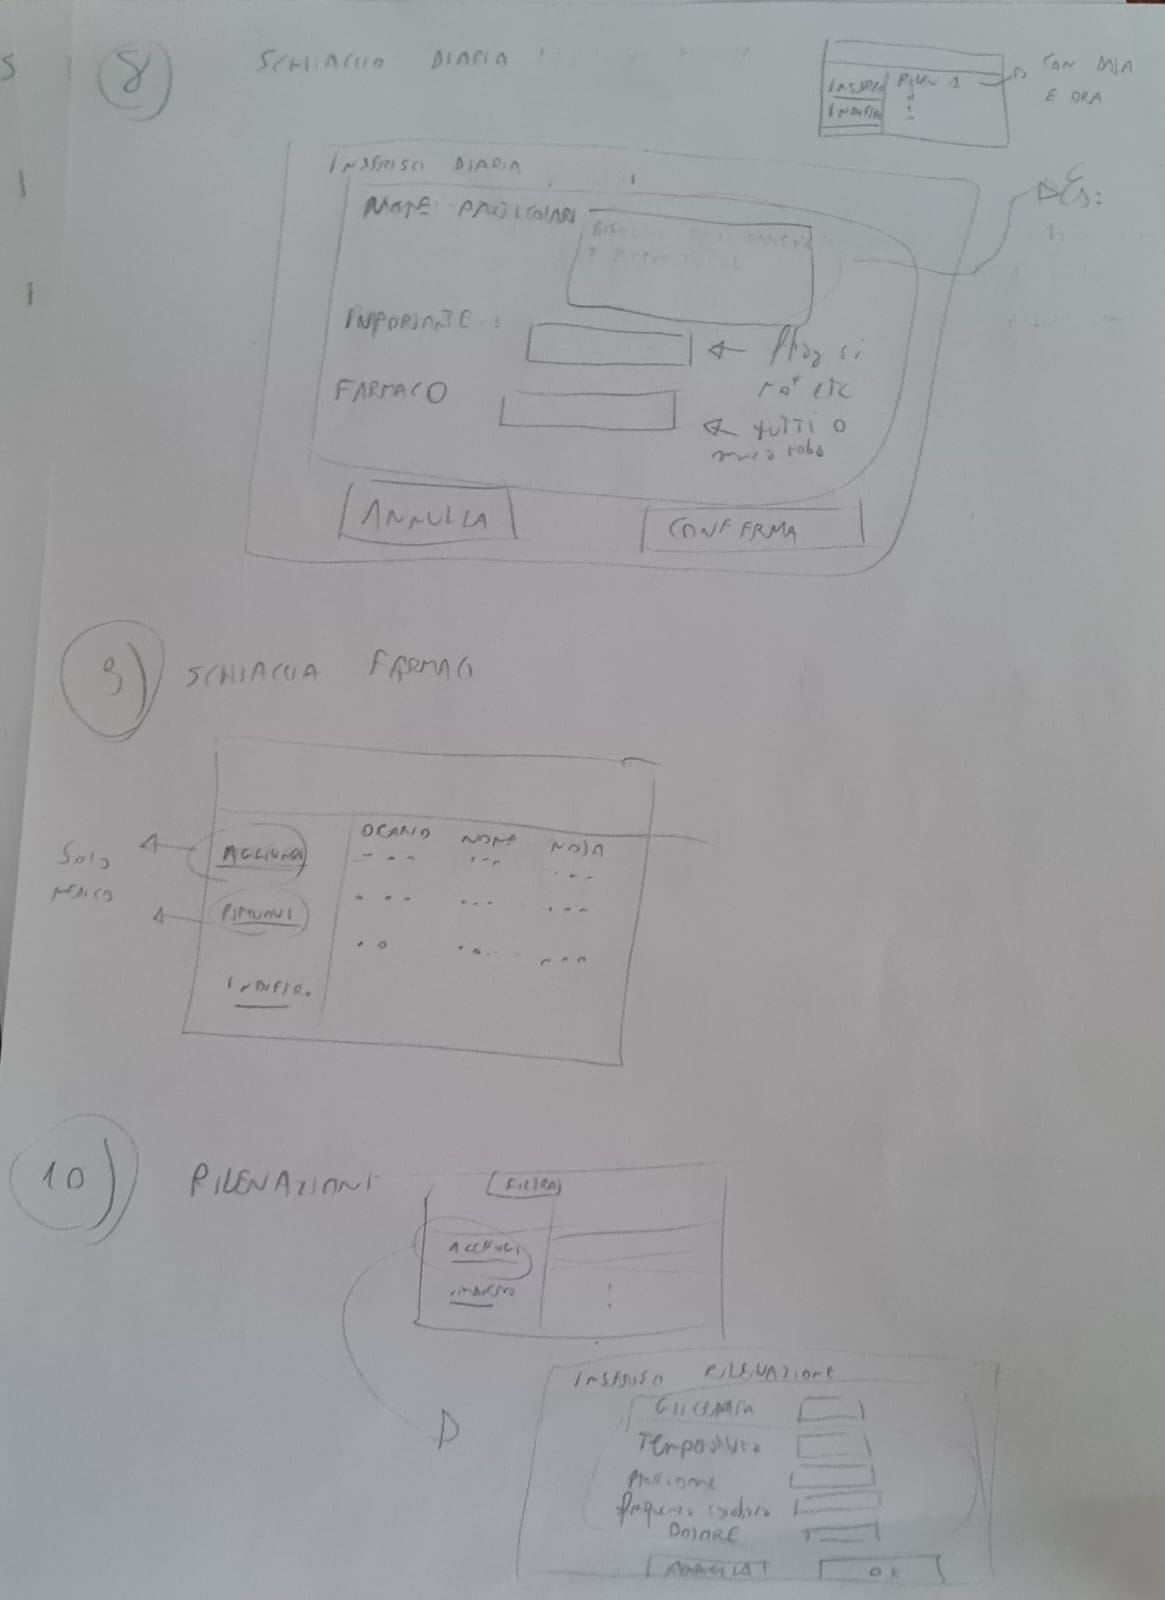 8
SCHIACCIO DIARIA
INSERISCI
INDIETRO
RILEV 1
CON DATA
E ORA
INSERISCI DIARIA
NOTE PARTICOLARI
Es:
IMPORTANTE :
flag si
no etc
FARMACO
tutti o
ANNULLA
CONFERMA
9)
SCHIACCIA FARMACI
Solo
MEDICO
AGGIUNGI
RIMUOVI
INDIETRO
ORARIO
NOME
NOTA
10)
RILEVAZIONI
FILTRA
AGGIUNGI
INDIETRO
INSERISCI RILEVAZIONE
GLICEMIA
Temperatura
Pressione
frequenza cardiaca
DOLORE
ANNULLA
OK